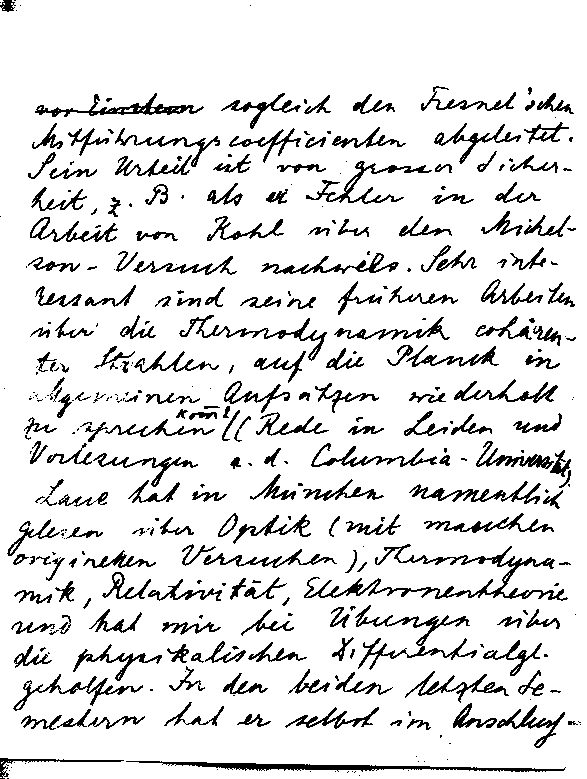 vor Einstein sogleich den Fresnel'schen
Mitführungscoefficienten abgeleitet.
Sein Urteil ist von grosser Sicher-
heit, z. B. als er Fehler in der
Arbeit von Kohl über den Michel-
son-Versuch nachwies. Sehr inte-
ressant sind seine früheren Arbeiten
über die Thermodynamik cohären-
ter Strahlen, auf die Planck in
allgemeinen Aufsätzen wiederholt
zu sprechen kam ((Rede in Leiden und
Vorlesungen a. d. Columbia-Universität).
Laue hat in München namentlich
gelesen über Optik (mit manchen
originellen Versuchen), Thermodyna-
mik, Relativität, Elektronentheorie
und hat mir bei Übungen über
die physikalischen Differentialgl.
geholfen. In den beiden letzten Se-
mestern hat er selbst im Anschluss